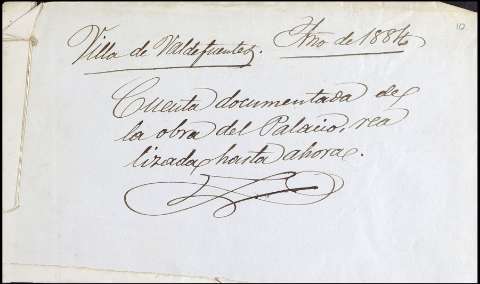 Villa de Valdefuentes. Año de 1884
10
Cuenta documentada de
la obra del Palacio, rea
lizada hasta ahora.